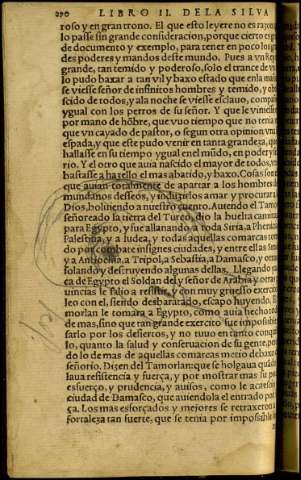 290 LIBRO II. DE LA SILVA
roso y en gran trono. El que esto leyere no es razon
lo passe sin grande consideracion, porque cierto es
de documento y exemplo, para tener en poco los
des poderes y mandos deste mundo. Pues a vn
grande, tan temido y poderoso, solo el trance de v
lo pudo baxar a tan vil y baxo estado que en la
se viesse señor de infinitos hombres y temido, y
scido de todos, y a la noche se viesse esclauo,
ygual con los perros de su señor. Y que le viniesse
por mano de hõbre, que vuo tiempo que no tenia
que vn cayado de pastor, o segun otra opinion vna
espada, y que este pudo venir en tanta grandeza,
hallasse en su tiempo ygual en el mũdo, en poder y
rio. Y el otro que auia nascido el mayor de todos,
bastasse a hazello el mas abatido, y baxo. Cosas son
que auian totalmente de apartar a los hombres
mundanos desseos, y induzirlos a amar y procurar
Dios, boluiendo a nuestro cuento. Auiendo el Tamor
señoreado la tierra del Turco, dio la buelta camino
para Egypto, y fue allanando a toda Siria, a Pheni
Palestina, y a Iudea, y todas aquellas comarcas
do por combate insignes ciudades, y entre ellas
y a Antiochia, a Tripol, a Sebastia, a Damasco, y
solando y destruyendo algunas dellas. Llegando
ca de Egypto el Soldan del, y señor de Arabia y otras
uincias le salio a resistir, y con muy gruesso exerci
leo con el, siendo desbaratado, escapo huyendo. El
morlan le tomara a Egypto, como auia hecho
de mas, sino que tan grande exercito fue impossible
sarlo por los desiertos, y no tuuo en tanto
lo, quanto la salud y conseruacion de su gente,
do lo de mas de aquellas comarcas metio debaxo
señorio. Dizen del Tamorlan: que se holgaua
laua resistencia y fuerça, y por mostrar mas su
esfuerço, y prudencia, y auisos, como le acaescio
ciudad de Damasco, que auiendola el entrado por
ça. Los mas esforçados y mejores se retraxeron a
fortaleza tan fuerte, que se tenia por impossible